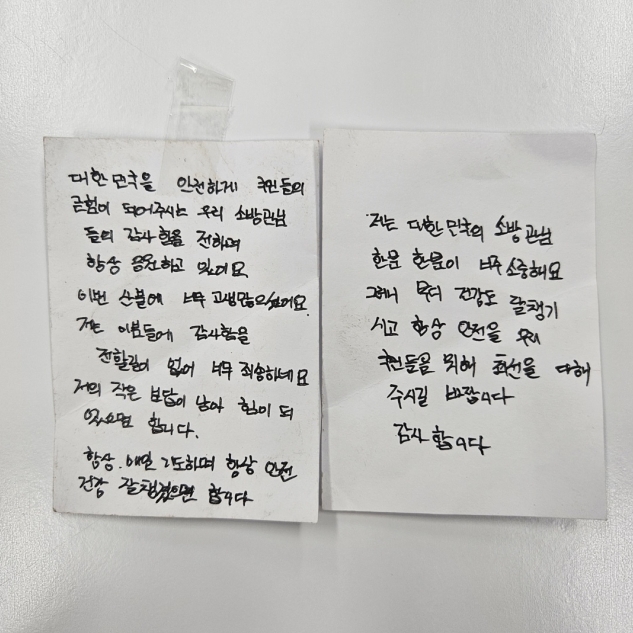 대한민국을 안전하게 국민들의
힘이 되어주시는 우리 소방관님
들의 감사함을 전하며
항상 응원하고 있어요
이번 산불에 너무 고생많으셨어요
저는 이분들에 감사함을
전할길이 없어 너무 죄송하네요
저의 작은 보답이 남아 힘이 되
었으면 합니다.
항상. 매일 기도하며 항상 안전
건강 잘챙겼으면 합니다
저는 대한민국의 소방관님
한분 한분이 너무 소중해요
그러니 부디 건강도 잘챙기
시고 항상 안전을 우리
국민들을 위해 최선을 다해
주시길 바랍니다
감사합니다